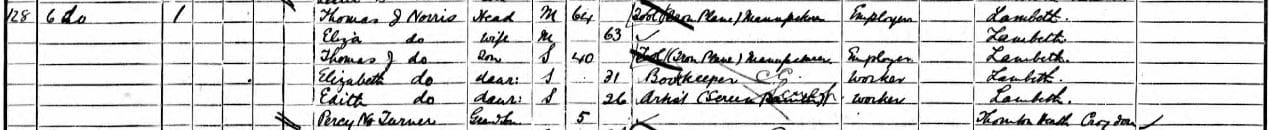 128 6 do 1 Thomas J Norris Head M 64 Tool (Iron Plane) Manufacturer Employer Lambeth.
Eliza do wife M 63 Lambeth.
Thomas J do Son S 40 Tool (Iron Plane) Manufacturer Employer Lambeth.
Elizabeth do daur: S 31 Bookkeeper worker Lambeth
Edith do daur: S 26 Artist (Screen worker Lambeth.
Percy N. Turner Grandson 5 Thornton Heath Croydon